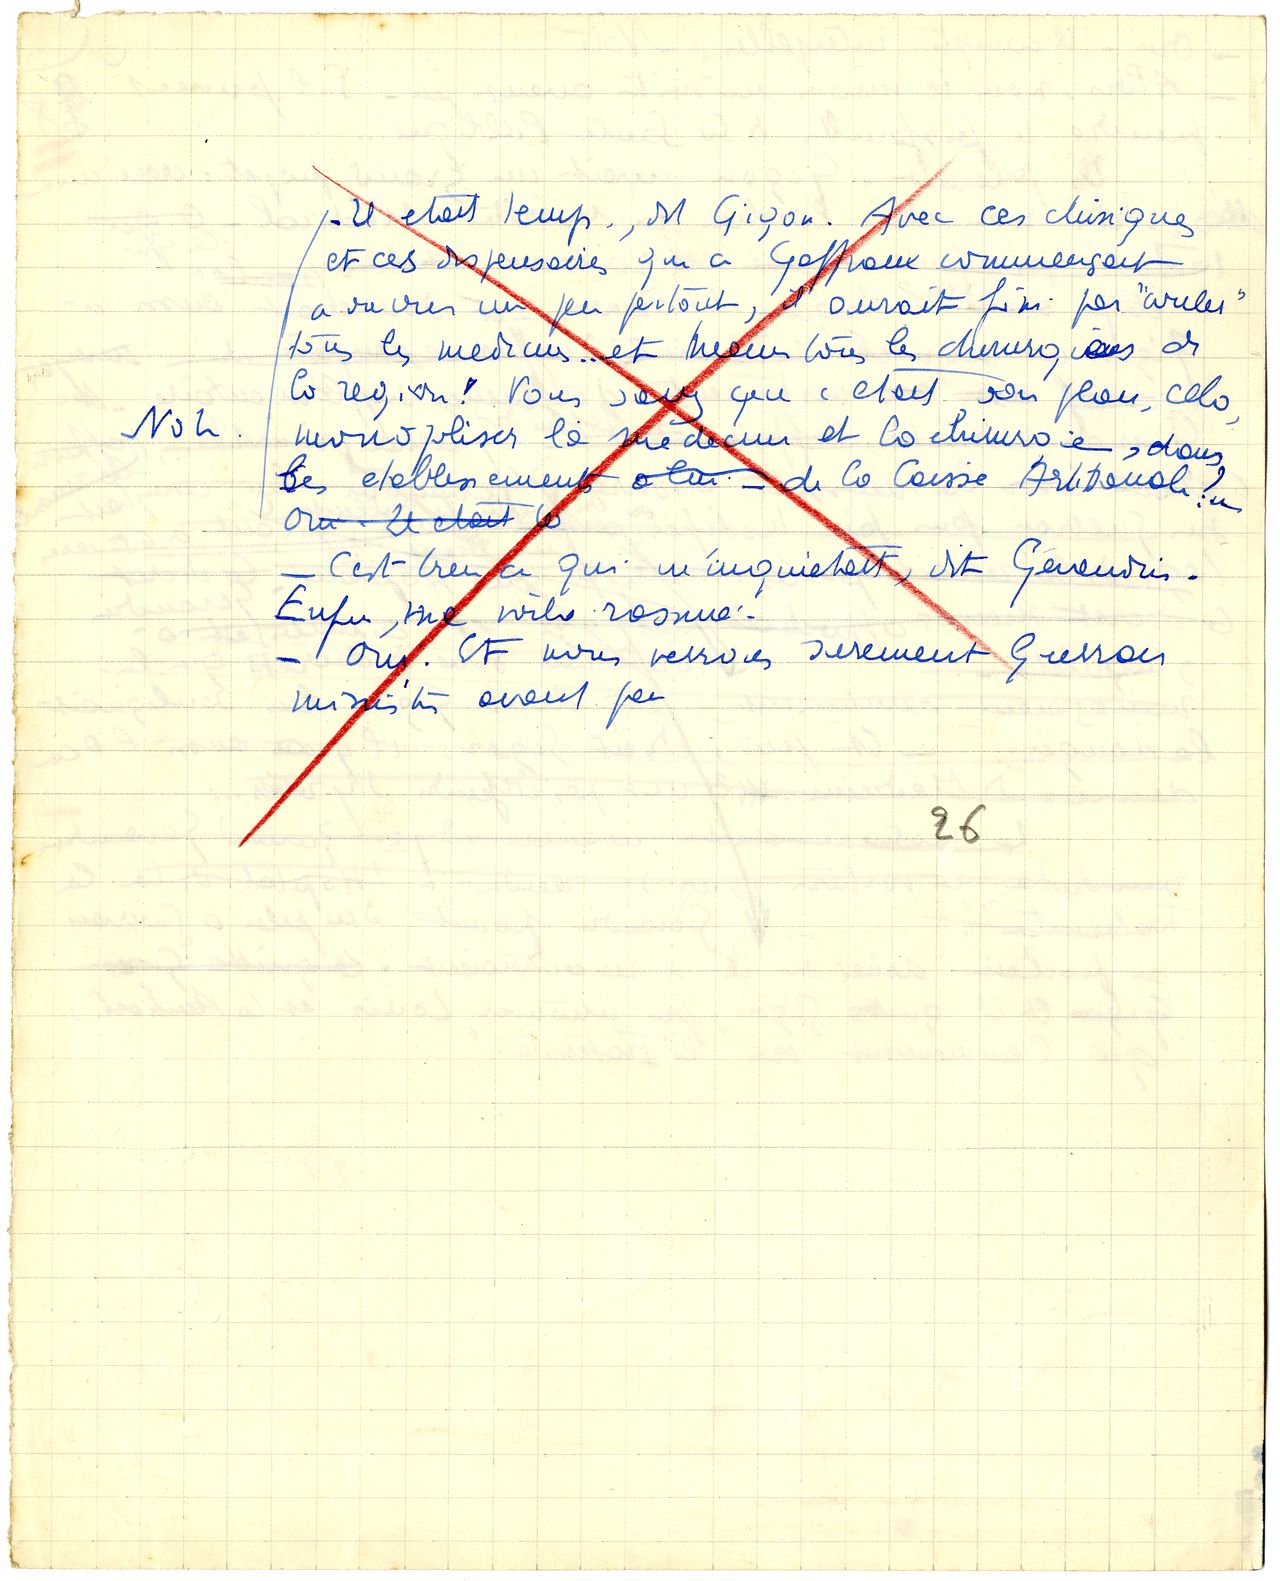 - Il etait temps, dit Giçon. Avec ces cliniques
et ces dispensaires que ce Gaffraux commençait
a ouvrir un peu partout, il aurait fini par "couler"
tous les medecins.. et meme tous les chirurgiens de
la region! Vous savez que c etait son plan, cela,
Note. monopoliser la médecine et la chirurgie, dans
les etablissements a lui - de la Caisse Artisanale?..
Oui - Il etait la
- C'est bien ce qui m'inquietait, dit Gérondin.
Enfin, me voila rassuré.
- Oui. Et nous verrons surement Guerran
ministre avant peu
26